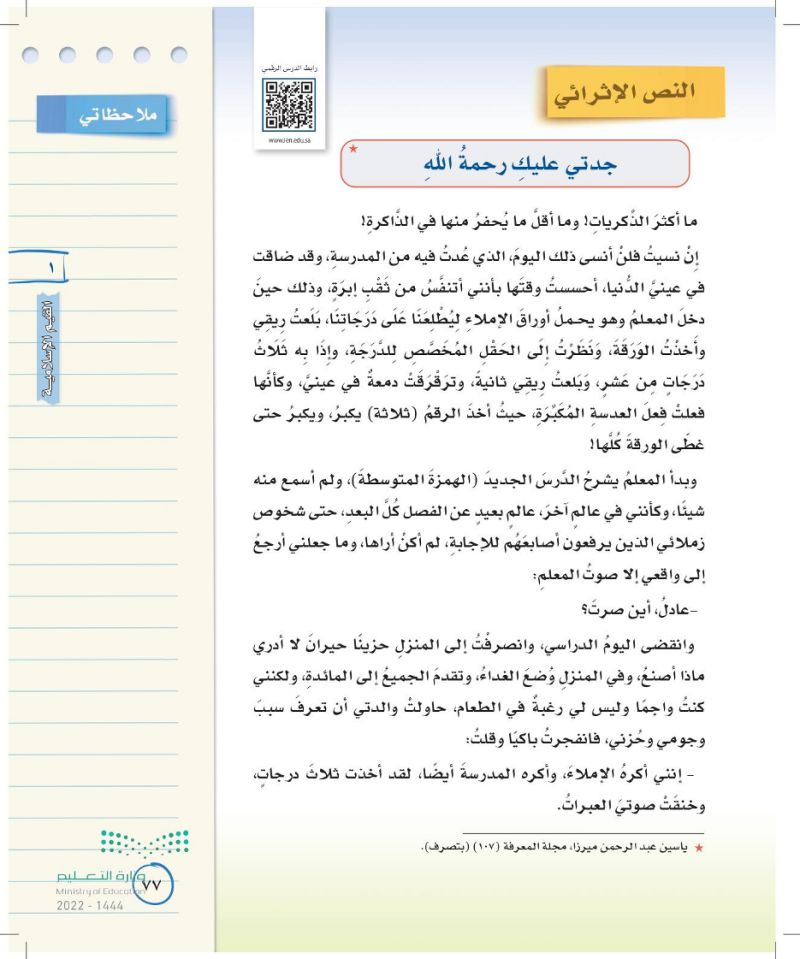 رابط الدرس الرقمي
www.ien.edu.sa
النص الإثرائي
ملاحظاتي
جدتي عليكِ رحمةُ اللهِ
★
ما أكثرَ الذِّكرياتِ! وما أقلَّ ما يُحفرُ منها في الذَّاكرةِ!
إنْ نسيتُ فلنْ أنسى ذلك اليومَ، الذي عُدتُ فيه من المدرسةِ، وقد ضاقت
في عينيَّ الدُّنيا، أحسستُ وقتَها بأنني أتنفَّسُ من ثَقْبِ إبرَةٍ، وذلك حينَ
دخلَ المعلمُ وهو يحملُ أوراقَ الإملاءِ ليُطْلِعَنَا عَلَى دَرَجَاتِنَا، بَلَعتُ رِيقِي
وأَخذْتُ الوَرَقَةَ، وَنَظَرْتُ إِلَى الحَقْلِ المُخَصَّصِ لِلدَّرَجَةِ، وإِذَا بِه ثَلَاثُ
دَرَجَاتٍ مِن عَشرٍ، وَبَلعتُ رِيقِي ثانيةً، وترَقْرَقَتْ دمعةٌ في عينيَّ، وكأنَّها
فعلتْ فِعلَ العدسةِ المُكَبِّرَةِ، حيثُ أخذَ الرقمُ (ثلاثة) يكبرُ، ويكبرُ حتى
غطَّى الورقةَ كُلَّها!
وبدأ المعلمُ يشرحُ الدَّرسَ الجديدَ (الهمزةَ المتوسطةَ)، ولم أسمع منه
شيئًا، وكأنني في عالمٍ آخرَ، عالمٍ بعيدٍ عن الفصل كُلَّ البعدِ، حتى شخوص
زملائي الذين يرفعون أصابعَهُم للإجابةِ، لم أكنْ أراها، وما جعلني أرجعُ
إلى واقعي إلا صوتُ المعلمِ:
-عادلُ، أين صرتَ؟
وانقضى اليومُ الدراسي، وانصرفْتُ إلى المنزلِ حزينًا حيرانَ لا أدري
ماذا أصنعُ، وفي المنزلِ وُضعَ الغداءُ، وتقدمَ الجميعُ إلى المائدةِ، ولكنني
كنتُ واجمًا وليس لي رغبةٌ في الطعام، حاولتْ والدتي أن تعرفَ سببَ
وجومي وحُزني، فانفجرتُ باكيًا وقلتُ:
- إنني أكرهُ الإملاءَ، وأكره المدرسةَ أيضًا، لقد أخذت ثلاثَ درجاتٍ،
وخنقَتْ صوتيَ العبراتُ.
★ ياسين عبد الرحمن ميرزا، مجلة المعرفة (١٠٧) (بتصرف).
١
القيم الإسلامية
وزارة التعليم
Ministry of Education
٧٧
2022 - 1444